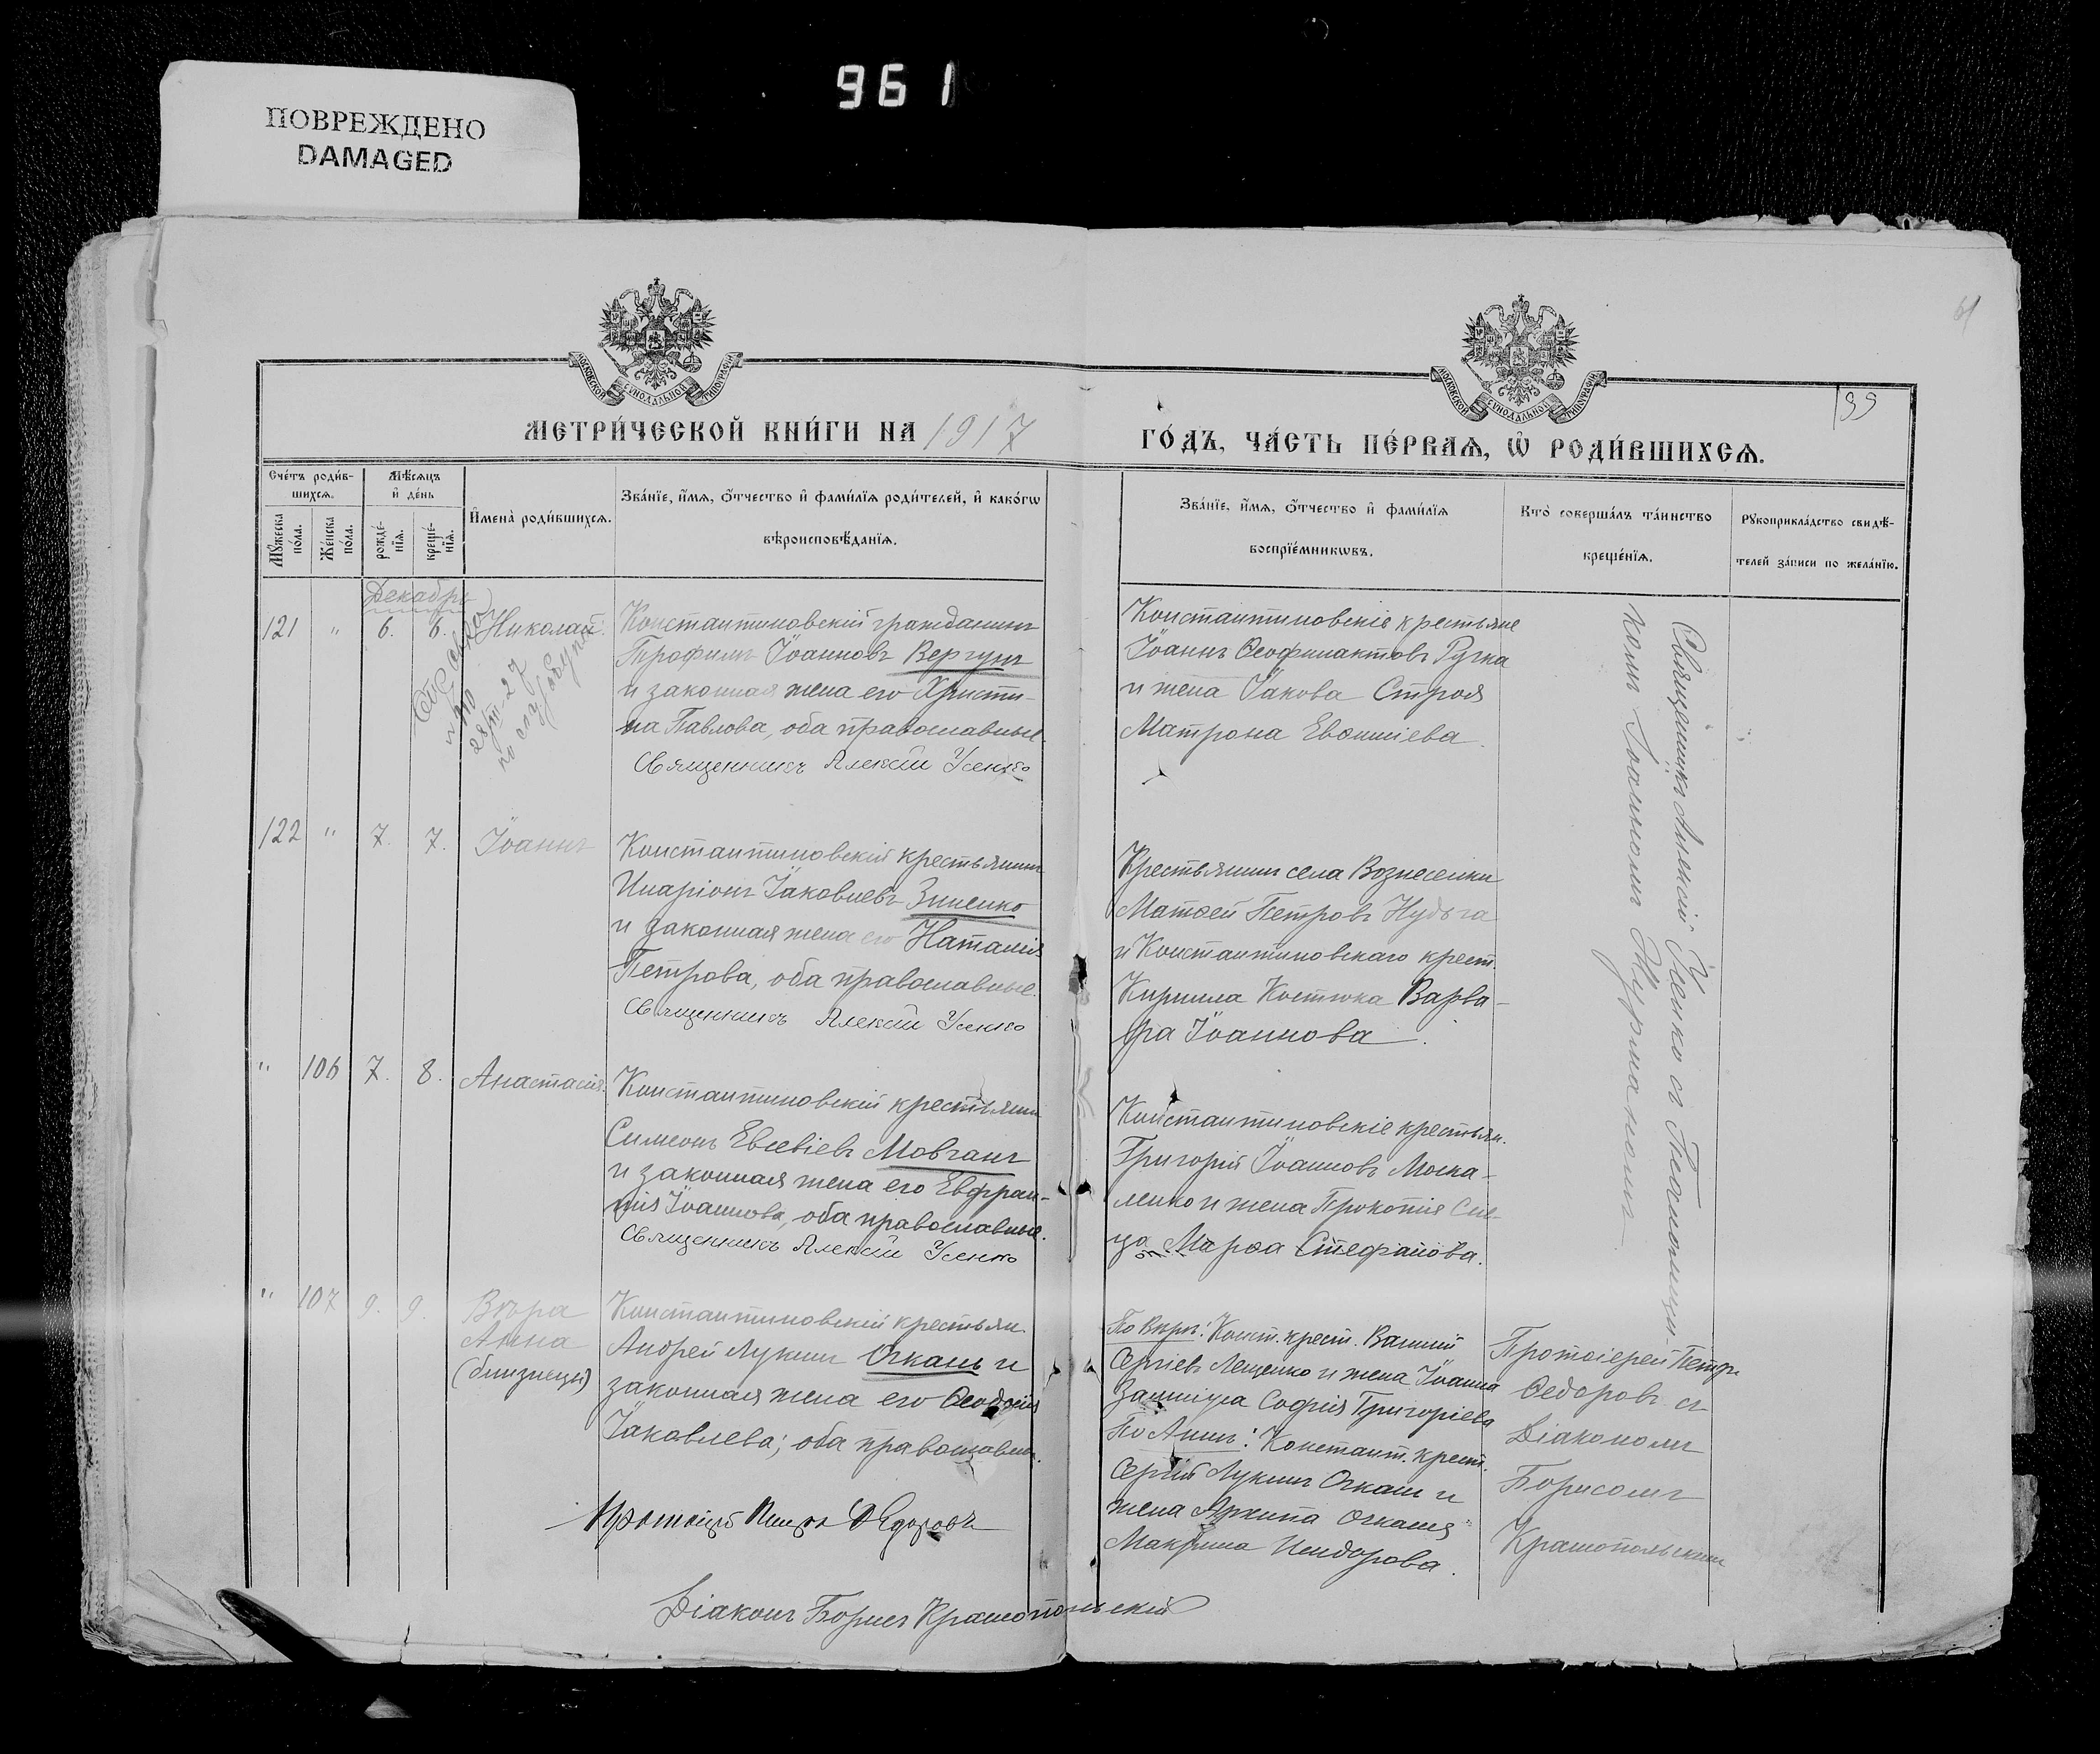 961
ПОВРЕЖДЕНО
DAMAGED
МОСКОВСКОЙ СУНОДАЛЬНОЙ ТИПОГРАФІИ
МОСКОВСКОЙ СУНОДАЛЬНОЙ ТИПОГРАФІИ
99
МЕТРИ́ЧЕСКОЙ КНИ́ГИ НА 1917
ГО́ДЪ, ЧА́СТЬ ПЕ́РВАѦ, Ѡ РОДИ́ВШИХСѦ.
Сче́тъ роди́в-
шихсѧ.
Мꙋ́жеска по́ла.
Же́нска по́ла.
Мѣ́сѧцъ
и҆ де́нь
рожде́-
нїѧ.
креще́-
нїѧ.
И҆мена̀ роди́вшихсѧ.
Зва́нїе, и҆́мѧ, ѻ҆́тчество и҆ фами́лїѧ роди́телей, и҆ како́гѡ
вѣроисповѣ́данїѧ.
Зва́нїе, и҆́мѧ, ѻ҆́тчество и҆ фами́лїѧ
воспрїе́мникѡвъ.
Кто̀ соверша́лъ та́инство
креще́нїѧ.
Рꙋкоприкла́дство свидѣ́-
телей за́писи по жела́нїю.
Декабрь
121 " 6. 6. Николай.
Константиновскій гражданинъ
Трофимъ Іоанновъ Вергунъ
и законная жена его Христи-
на Павлова, оба православные.
Священникъ Алексій Усенко
Константиновскіе крестьяне
Іоаннъ Ѳеофилактовъ Ручка
и жена Іакова Строя
Матрона
Священникъ Алексій Усенко съ Псаломщи-
комъ Іоанномъ
122 " 7. 7. Іоаннъ
Константиновскій крестьянинъ
Иларіонъ Іаковлевъ Зиненко
и законная жена его Наталія
Петрова, оба православные.
Священникъ Алексій Усенко
Крестьянинъ села Вознесенки
Матѳей Петровъ Нудьга
и Константиновскаго крест.
Кирилла Костюка Варва-
ра Іоаннова.
" 106 7. 8. Анастасія.
Константиновскій крестьянин
Симеонъ Евсевіевъ Мовчанъ
и законная жена его Евфраси-
нія Іоаннова, оба православные.
Священникъ Алексій Усенко
Константиновскіе крестьян.
Григорій Іоанновъ Моска-
ленко и жена Прокопія
Марѳа Стефанова.
" 107 9. 9. Вѣра
Анна
(близнецы)
Константиновскій крестьян.
Андрей Лукинъ Очкань и
законная жена его Ѳеодосія
Іаковлева; оба православн.
Протоіерей Петръ Ѳедоровъ
Діаконъ Борисъ Краснопольскій
По Вѣрѣ: Конст. крест. Василій
Сергіевъ Лещенко и жена Іоанна
София Григоріева
По Аннѣ: Константин. крест.
Сергій Лукинъ Очкань и
жена Архипа Очканя
Макрина Исидорова.
Протоіерей Петръ
Ѳедоровъ съ
Діакономъ
Борисомъ
Краснопольскимъ